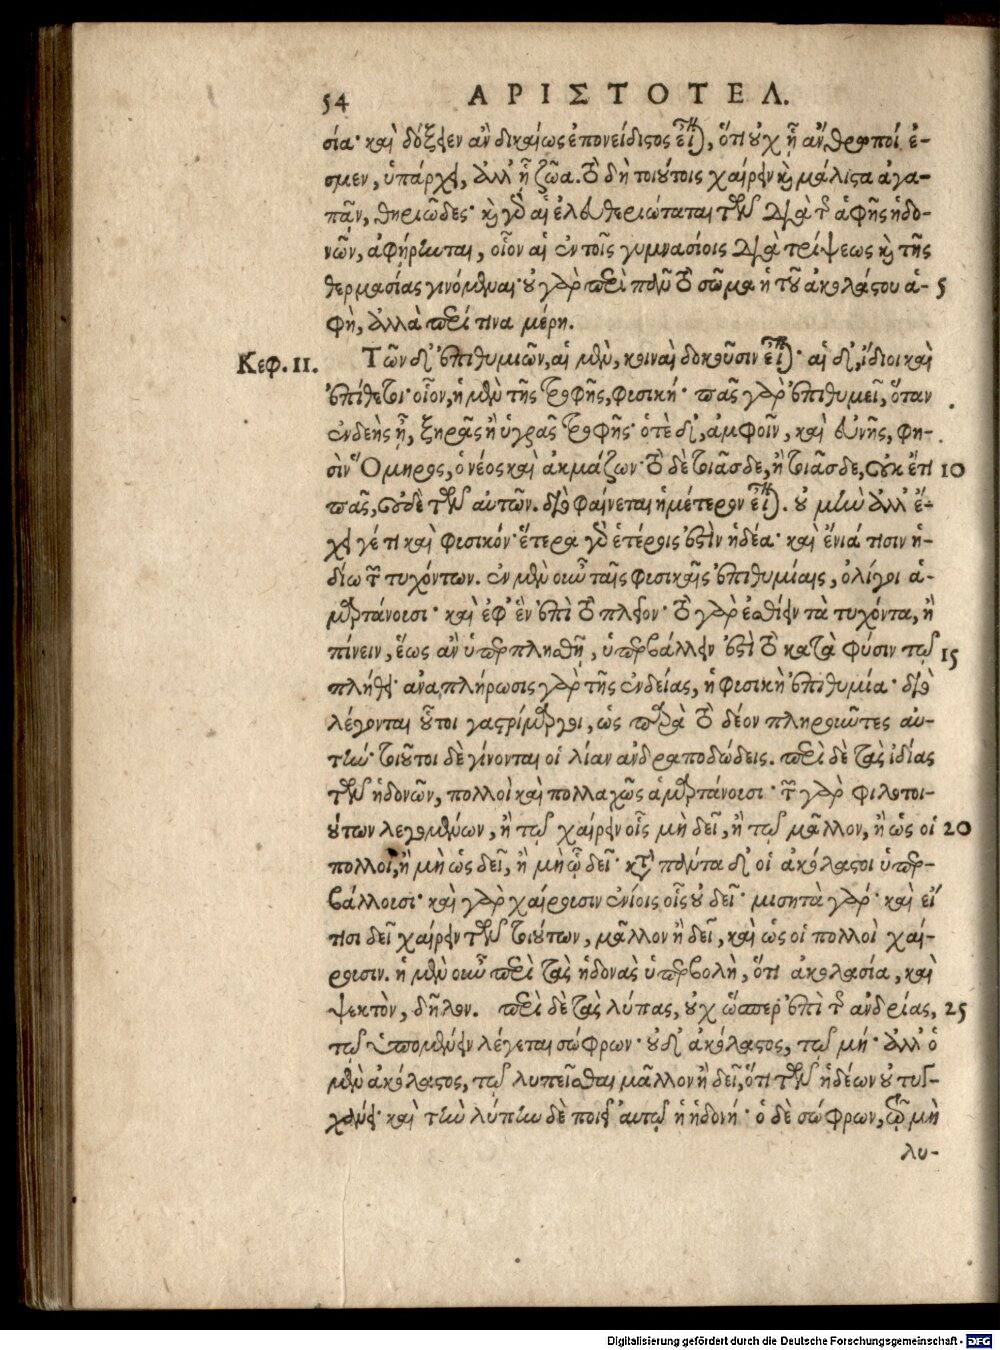 54 ΑΡΙΣΤΟΤΕΛ.
σία· καὶ δόξειεν ἂν δικαίως ἐπονείδιστος εἶναι, ὅτι οὐχ ᾗ ἄνθρωποί ἐ-
σμεν, ὑπάρχει, ἀλλ' ᾗ ζῶα. τὸ δὴ τοιούτοις χαίρειν καὶ μάλιστα ἀγα-
πᾷν, θηριῶδες· καὶ γὰρ αἱ ἐλευθεριώταται τῶν διὰ τῆς ἁφῆς ἡδο-
νῶν, ἀφῄρηνται, οἷον αἱ ἐν τοῖς γυμνασίοις διὰ τρίψεως καὶ τῆς
θερμασίας γινόμεναι· οὐ γὰρ περὶ πᾶν τὸ σῶμα ἡ τοῦ ἀκολάστου ἁ- 5
φὴ, ἀλλὰ περί τινα μέρη.
Κεφ. 11. Τῶν δ' ἐπιθυμιῶν, αἱ μὲν, κοιναὶ δοκοῦσιν εἶναι· αἱ δ', ἴδιοι καὶ
ἐπίθετοι· οἷον, ἡ μὲν τῆς τροφῆς, φυσική· πᾶς γὰρ ἐπιθυμεῖ, ὅταν
ἐνδεὴς ᾖ, ξηρᾶς ἢ ὑγρᾶς τροφῆς· ὁτὲ δ', ἀμφοῖν, καὶ εὐνῆς, φη-
σὶν Ὅμηρος, ὁ νέος καὶ ἀκμάζων· τὸ δὲ τοιᾶσδε, ἢ τοιᾶσδε, οὐκ ἔτι 10
πᾶς, οὐδὲ τῶν αὐτῶν. διὸ φαίνεται ἡμέτερον εἶναι. οὐ μὴν ἀλλ' ἔ-
χει γέ τι καὶ φυσικόν· ἕτερα γὰρ ἑτέροις ἐστὶν ἡδέα· καὶ ἔνιά τισιν ἡ-
δίω τῶν τυχόντων. ἐν μὲν οὖν ταῖς φυσικαῖς ἐπιθυμίαις, ὀλίγοι ἁ-
μαρτάνουσι· καὶ ἐφ' ἓν ἐπὶ τὸ πλεῖον· τὸ γὰρ ἐσθίειν τὰ τυχόντα, ἢ
πίνειν, ἕως ἂν ὑπερπλησθῇ, ὑπερβάλλειν ἐστὶ τὸ κατὰ φύσιν τῷ 15
πλήθει· ἀναπλήρωσις γὰρ τῆς ἐνδείας, ἡ φυσικὴ ἐπιθυμία· διὸ
λέγονται οὗτοι γαστρίμαργοι, ὡς παρὰ τὸ δέον πληροῦντες αὐ-
τήν· τοιοῦτοι δὲ γίνονται οἱ λίαν ἀνδραποδώδεις. περὶ δὲ τὰς ἰδίας
τῶν ἡδονῶν, πολλοὶ καὶ πολλαχῶς ἁμαρτάνουσι· τῶν γὰρ φιλοτοι-
ούτων λεγομένων, ἢ τῷ χαίρειν οἷς μὴ δεῖ, ἢ τῷ μᾶλλον, ἢ ὡς οἱ 20
πολλοὶ, ἢ μὴ ὡς δεῖ, ἢ μὴ ᾧ δεῖ· κατὰ πάντα δ' οἱ ἀκόλαστοι ὑπερ-
βάλλουσι· καὶ γὰρ χαίρουσιν ἐνίοις οἷς οὐ δεῖ· μισητὰ γάρ· καὶ εἴ
τισι δεῖ χαίρειν τῶν τοιούτων, μᾶλλον ἢ δεῖ, καὶ ὡς οἱ πολλοὶ χαί-
ρουσιν. ἡ μὲν οὖν περὶ τὰς ἡδονὰς ὑπερβολὴ, ὅτι ἀκολασία, καὶ
ψεκτὸν, δῆλον. περὶ δὲ τὰς λύπας, οὐχ ὥσπερ ἐπὶ τῆς ἀνδρίας, 25
τῷ ὑπομένειν λέγεται σώφρων· οὐδ' ἀκόλαστος, τῷ μή· ἀλλ' ὁ
μὲν ἀκόλαστος, τῷ λυπεῖσθαι μᾶλλον ἢ δεῖ, ὅτι τῶν ἡδέων οὐ τυγ-
χάνει· καὶ τὴν λύπην δὲ ποιεῖ αὐτῷ ἡ ἡδονή· ὁ δὲ σώφρων, τῷ μὴ
λυ-
Digitalisierung gefördert durch die Deutsche Forschungsgemeinschaft - DFG